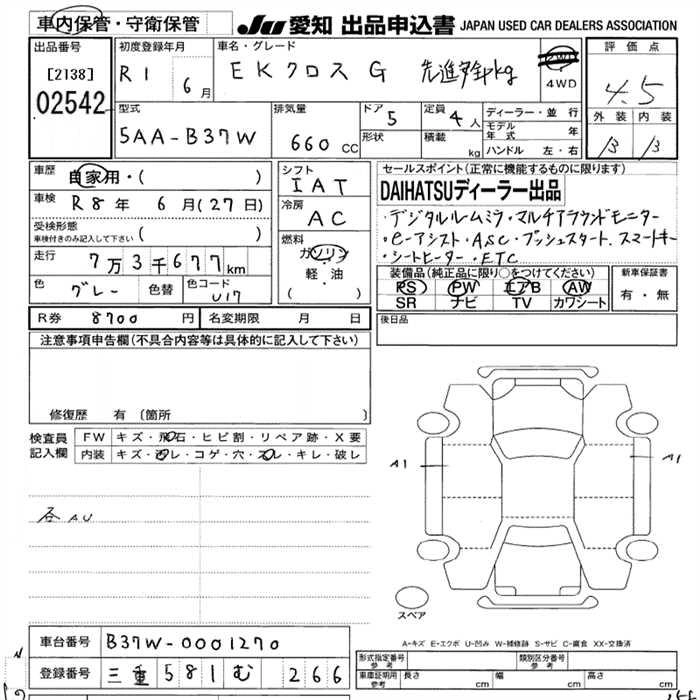 車内保管・守衛保管
JU 愛知 出品申込書 JAPAN USED CAR DEALERS ASSOCIATION
出品番号
[2138]
02542
初度登録年月
R1 6月
車名・グレード
EKクロス G 先進安全pkg
2WD
4WD
評価点
4.5
外装 内装
B B
型式
5AA-B37W
排気量
660 CC
ドア 5
形状
定員 4人
積載 kg
ディーラー・並行
モデル年式 年
ハンドル 左・右
車歴
自家用・( )
車検
R8年 6月(27日)
受検形態
車検付きのみ記入して下さい ( )
走行
7万3千677km
色
グレー
色替
色コード
U17
シフト
IAT
冷房
AC
燃料
ガソリン
軽・油
( )
セールスポイント(正常に機能するものに限ります)
DAIHATSUディーラー出品
・デジタルルームミラ・マルチアラウンドモニター
・e-アシスト・ASC・プッシュスタート.スマートキー
・シートヒーター・ETC
装備品(純正品に限り○をつけてください)
PS PW エアB AW
SR ナビ TV カワシート
新車保証書
有・無
R券 8700 円 名変期限 月 日
後日品
注意事項申告欄(不具合内容等は具体的に記入して下さい)
修復歴 有 〔箇所 〕
検査員記入欄
FW キズ・飛石・ヒビ割・リペア跡・X要
内装 キズ・コゲ・穴・スレ・キレ・破レ
AU
A1
A1
スペア
A-キズ E-エクボ U-凹み W-補修跡 S-サビ C-腐食 XX-交換済
車台番号 B37W-0001270
登録番号 三重 581 む 266
形式指定番号 参考
類別区分番号 参考
車庫証明用 参考 長さ cm 幅 cm 高さ cm